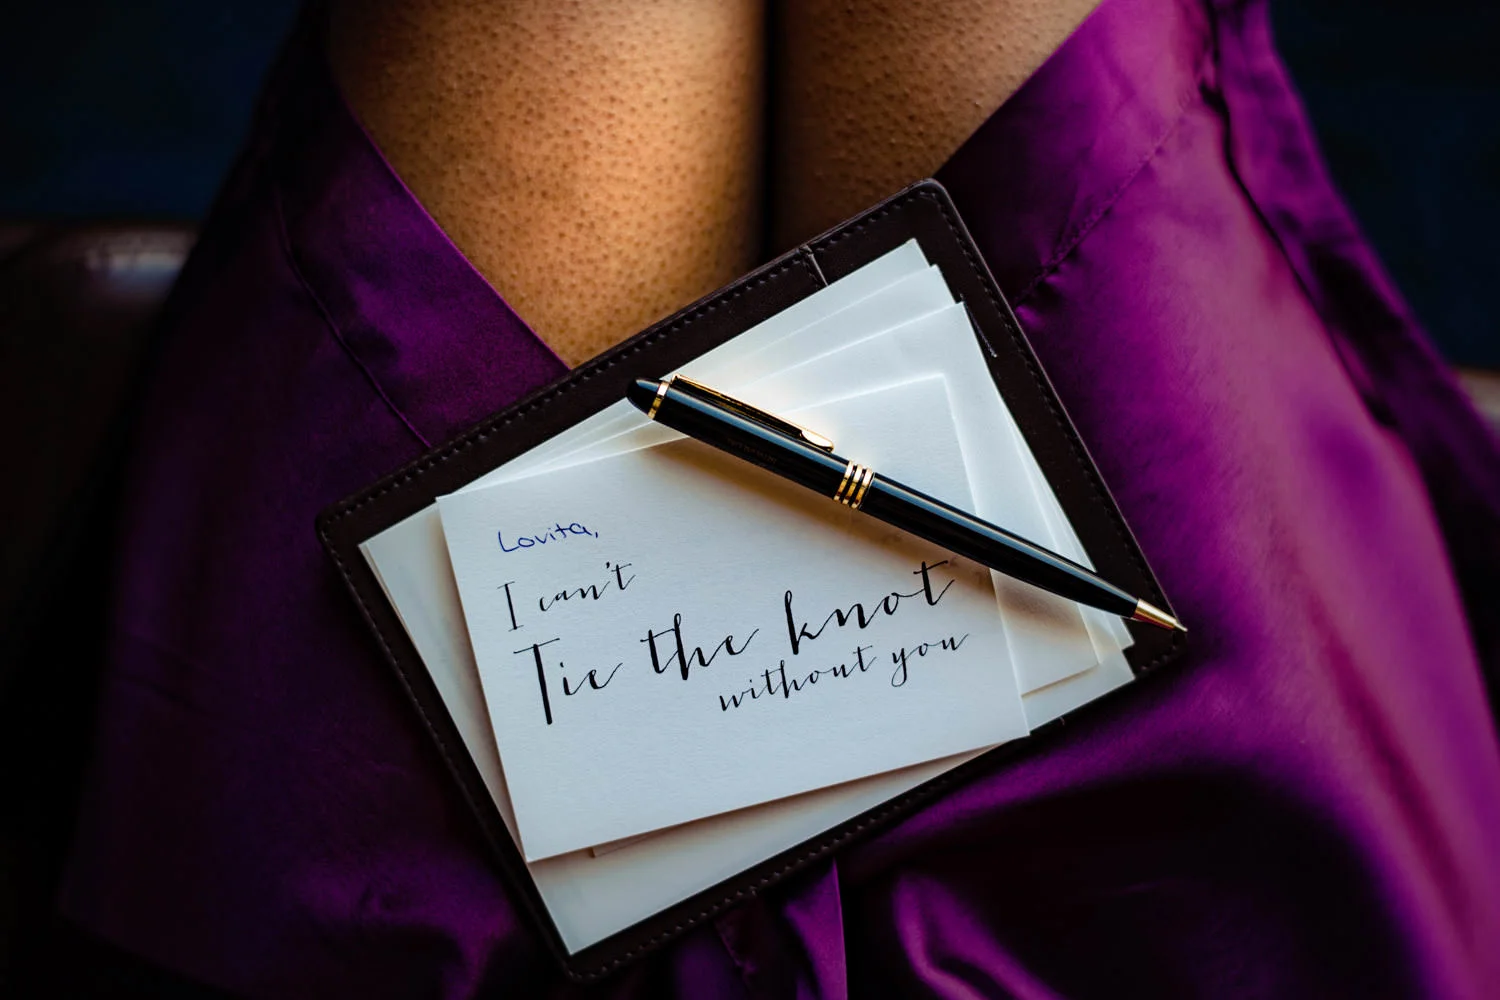 Lovita,
I can't
Tie the knot
without you